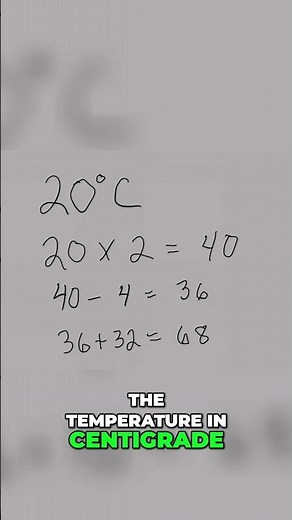 20°C
20 x 2 = 40
40 - 4 = 36
36 + 32 = 68
THE
TEMPERATURE IN
CENTIGRADE